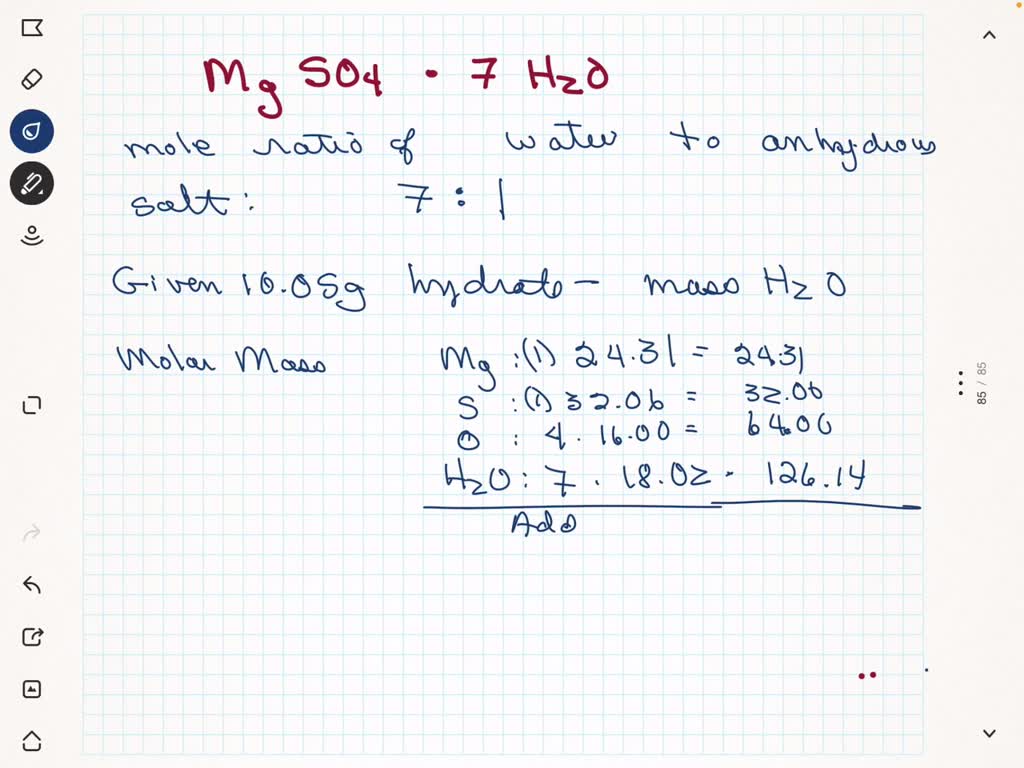 Mg SO4 • 7 H2O
mole ratio of water to anhydrous
salt: 7 : 1
Given 10.05g hydrate - mass H2O
Molar Mass Mg : (1) 24.31 = 24.31
S : (1) 32.06 = 32.06
O : 4 . 16.00 = 64.00
H2O : 7 . 18.02 - 126.14
Add
85 / 85